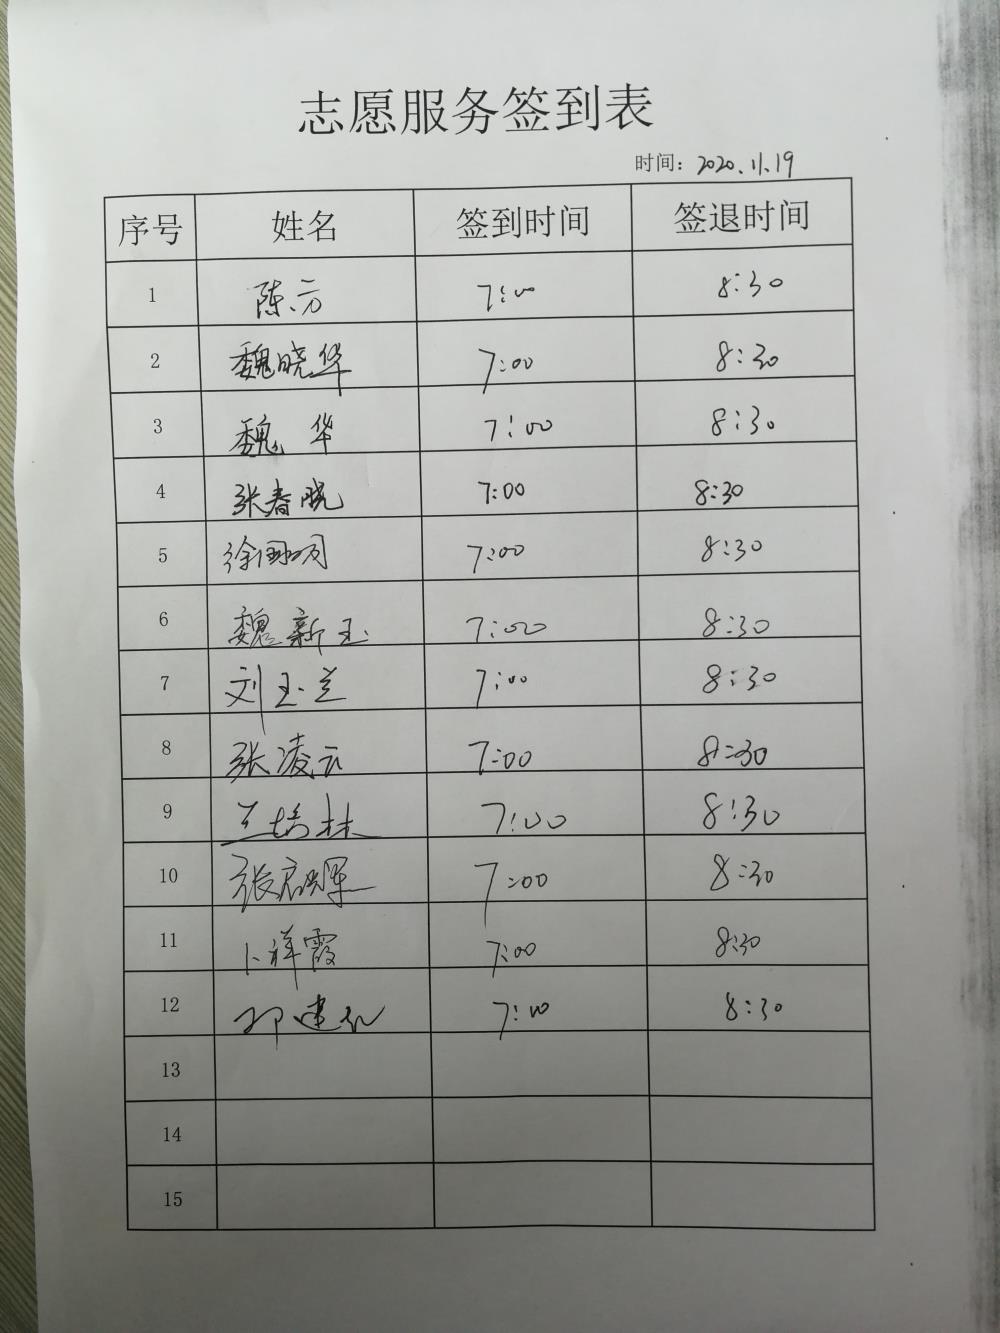 志愿服务签到表
时间：2020.11.19
序号 姓名 签到时间 签退时间
1 陈方 7:00 8:30
2 魏晓华 7:00 8:30
3 魏华 7:00 8:30
4 张春晓 7:00 8:30
5 徐国明 7:00 8:30
6 魏新玉 7:00 8:30
7 刘玉兰 7:00 8:30
8 张凌云 7:00 8:30
9 兰培林 7:00 8:30
10 张启辉 7:00 8:30
11 卜祥霞 7:00 8:30
12 建 7:00 8:30
13
14
15